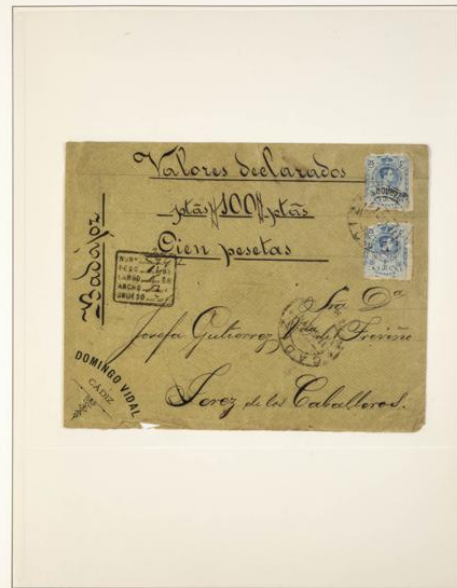 Valores declarados
ptas 100 ptas
Cien pesetas
Badajoz
NUM.
PESO
LARGO
ANCHO
GRUESO
Sra Dª
Josefa Gutierrez Treviño
Jerez de los Caballeros.
DOMINGO VIDAL
CÁDIZ